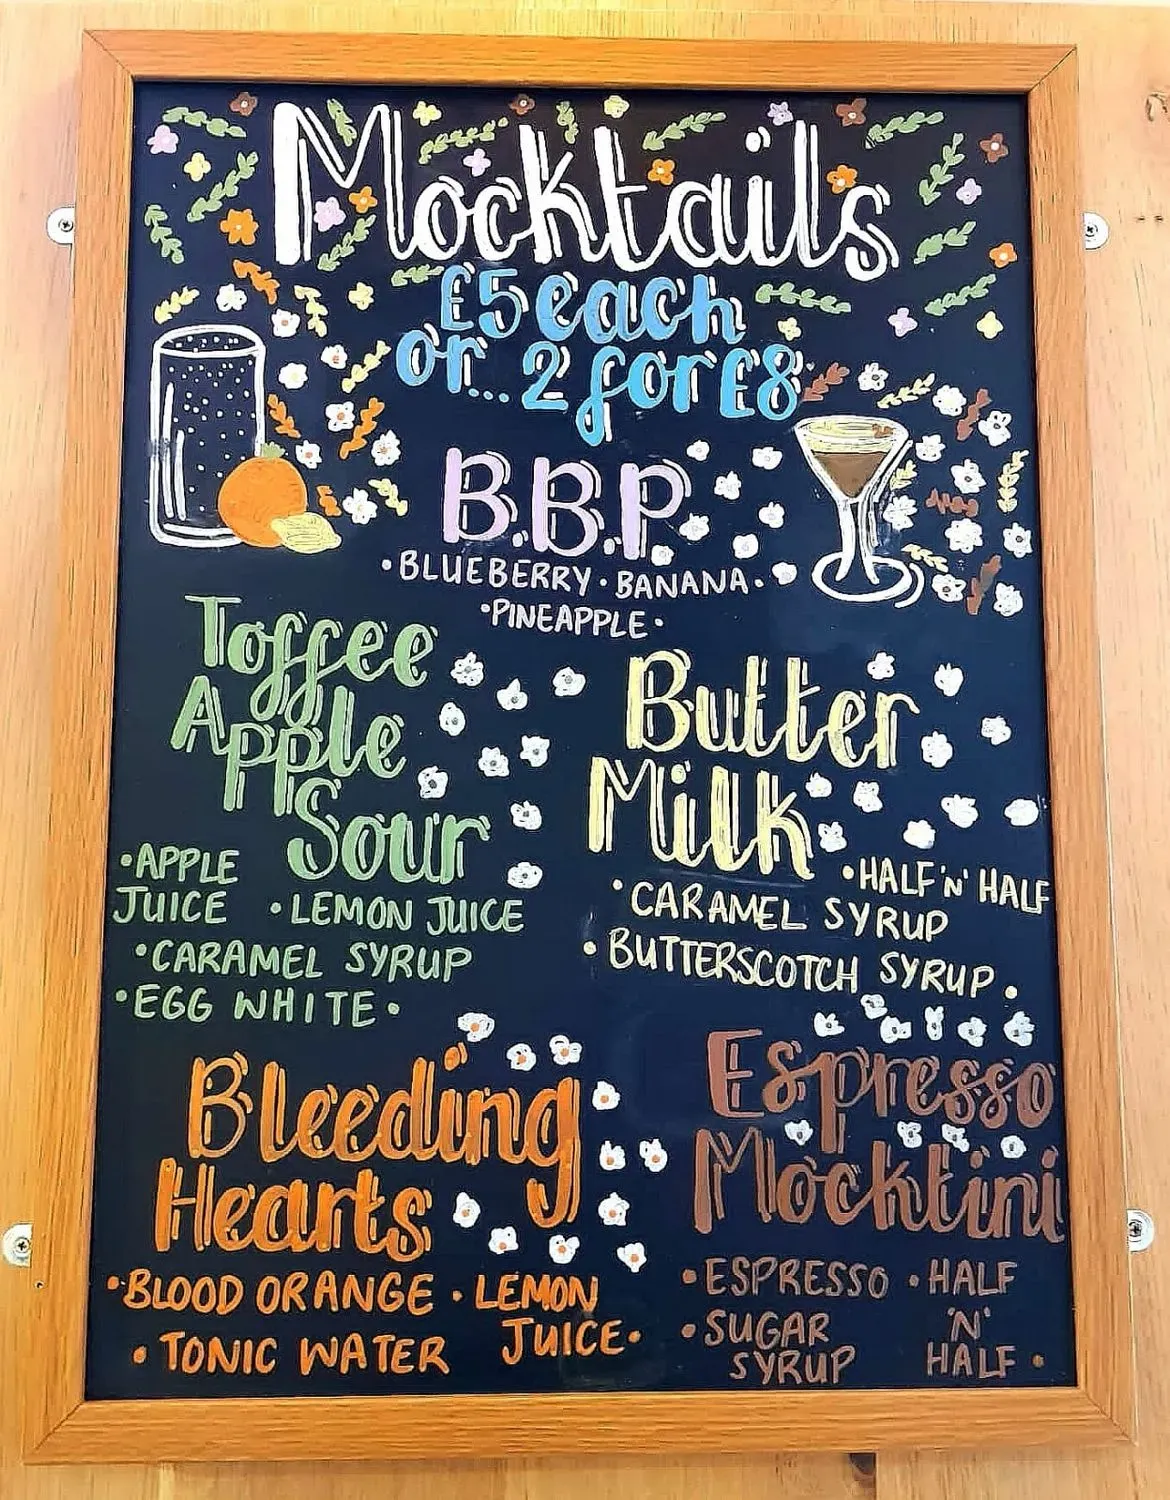 Mocktails
£5 each
or... 2 for £8
B.B.P
•BLUEBERRY•BANANA•
•PINEAPPLE•
Toffee
Apple
Sour
•APPLE
JUICE •LEMON JUICE
•CARAMEL SYRUP
•EGG WHITE•
Butter
Milk
•HALF 'N' HALF
•CARAMEL SYRUP
•BUTTERSCOTCH SYRUP•
Bleeding
Hearts
•BLOOD ORANGE •LEMON
JUICE•
•TONIC WATER
Espresso
Mocktini
•ESPRESSO •HALF
'N'
HALF•
•SUGAR
SYRUP